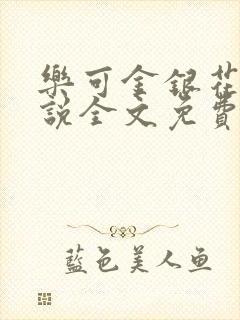 樂可金銀花
說全文免費
藍色美人魚